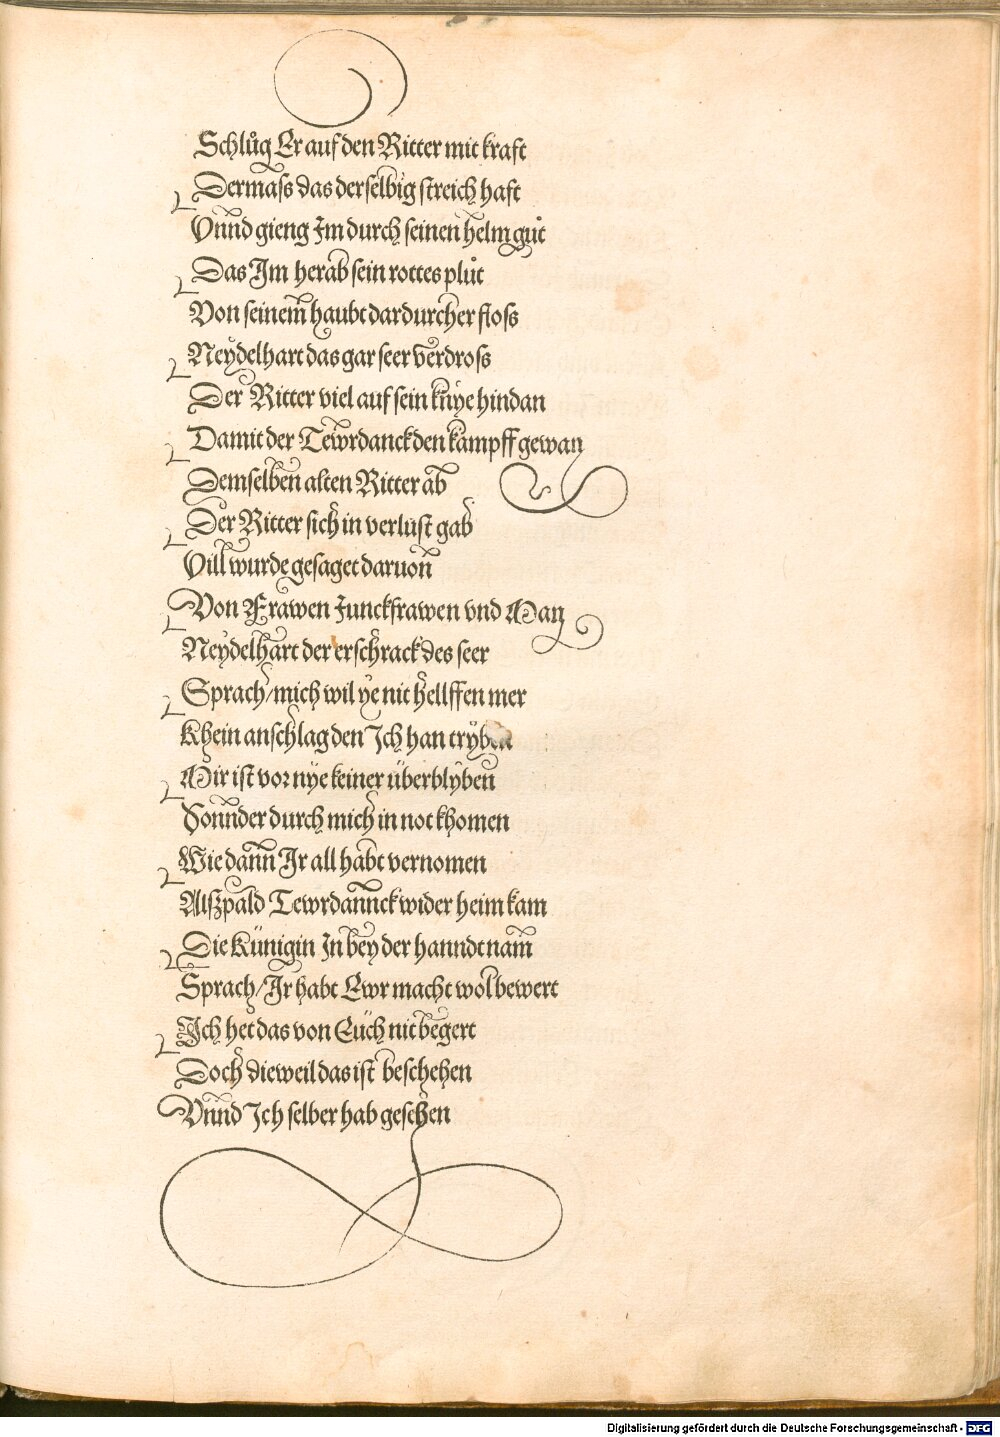 Schlůg Er auf den Ritter mit kraft
Dermass das derselbig streich haft
Vnnd gieng Im durch seinen helm gůt
Das Im herab sein rottes plůt
Von seinem haubt dardurch er floss
Neydelhart das gar seer verdross
Der Ritter viel auf sein knye hindan
Damit der Tewrdanck den kampff gewan
Demselben alten Ritter ab
Der Ritter sich in verlust gab
Vill wurde gesaget daruon
Von Frawen Junckfrawen vnd Man
Neydelhart der erschrack des seer
Sprach / mich wil ye nit hellffen mer
Khein anschlag den Ich han tryben
Mir ist vor nye keiner überblyben
Sonnder durch mich in not khomen
Wie dann Ir all habt vernomen
Alszpald Tewrdannck wider heim kam
Die Künigin In bey der hanndt nam
Sprach / Ir habt Ewr macht wol bewert
Ich het das von Eüch nit begert
Doch dieweil das ist beschehen
Vnnd Ich selber hab gesehen
Digitalisierung gefördert durch die Deutsche Forschungsgemeinschaft - DFG